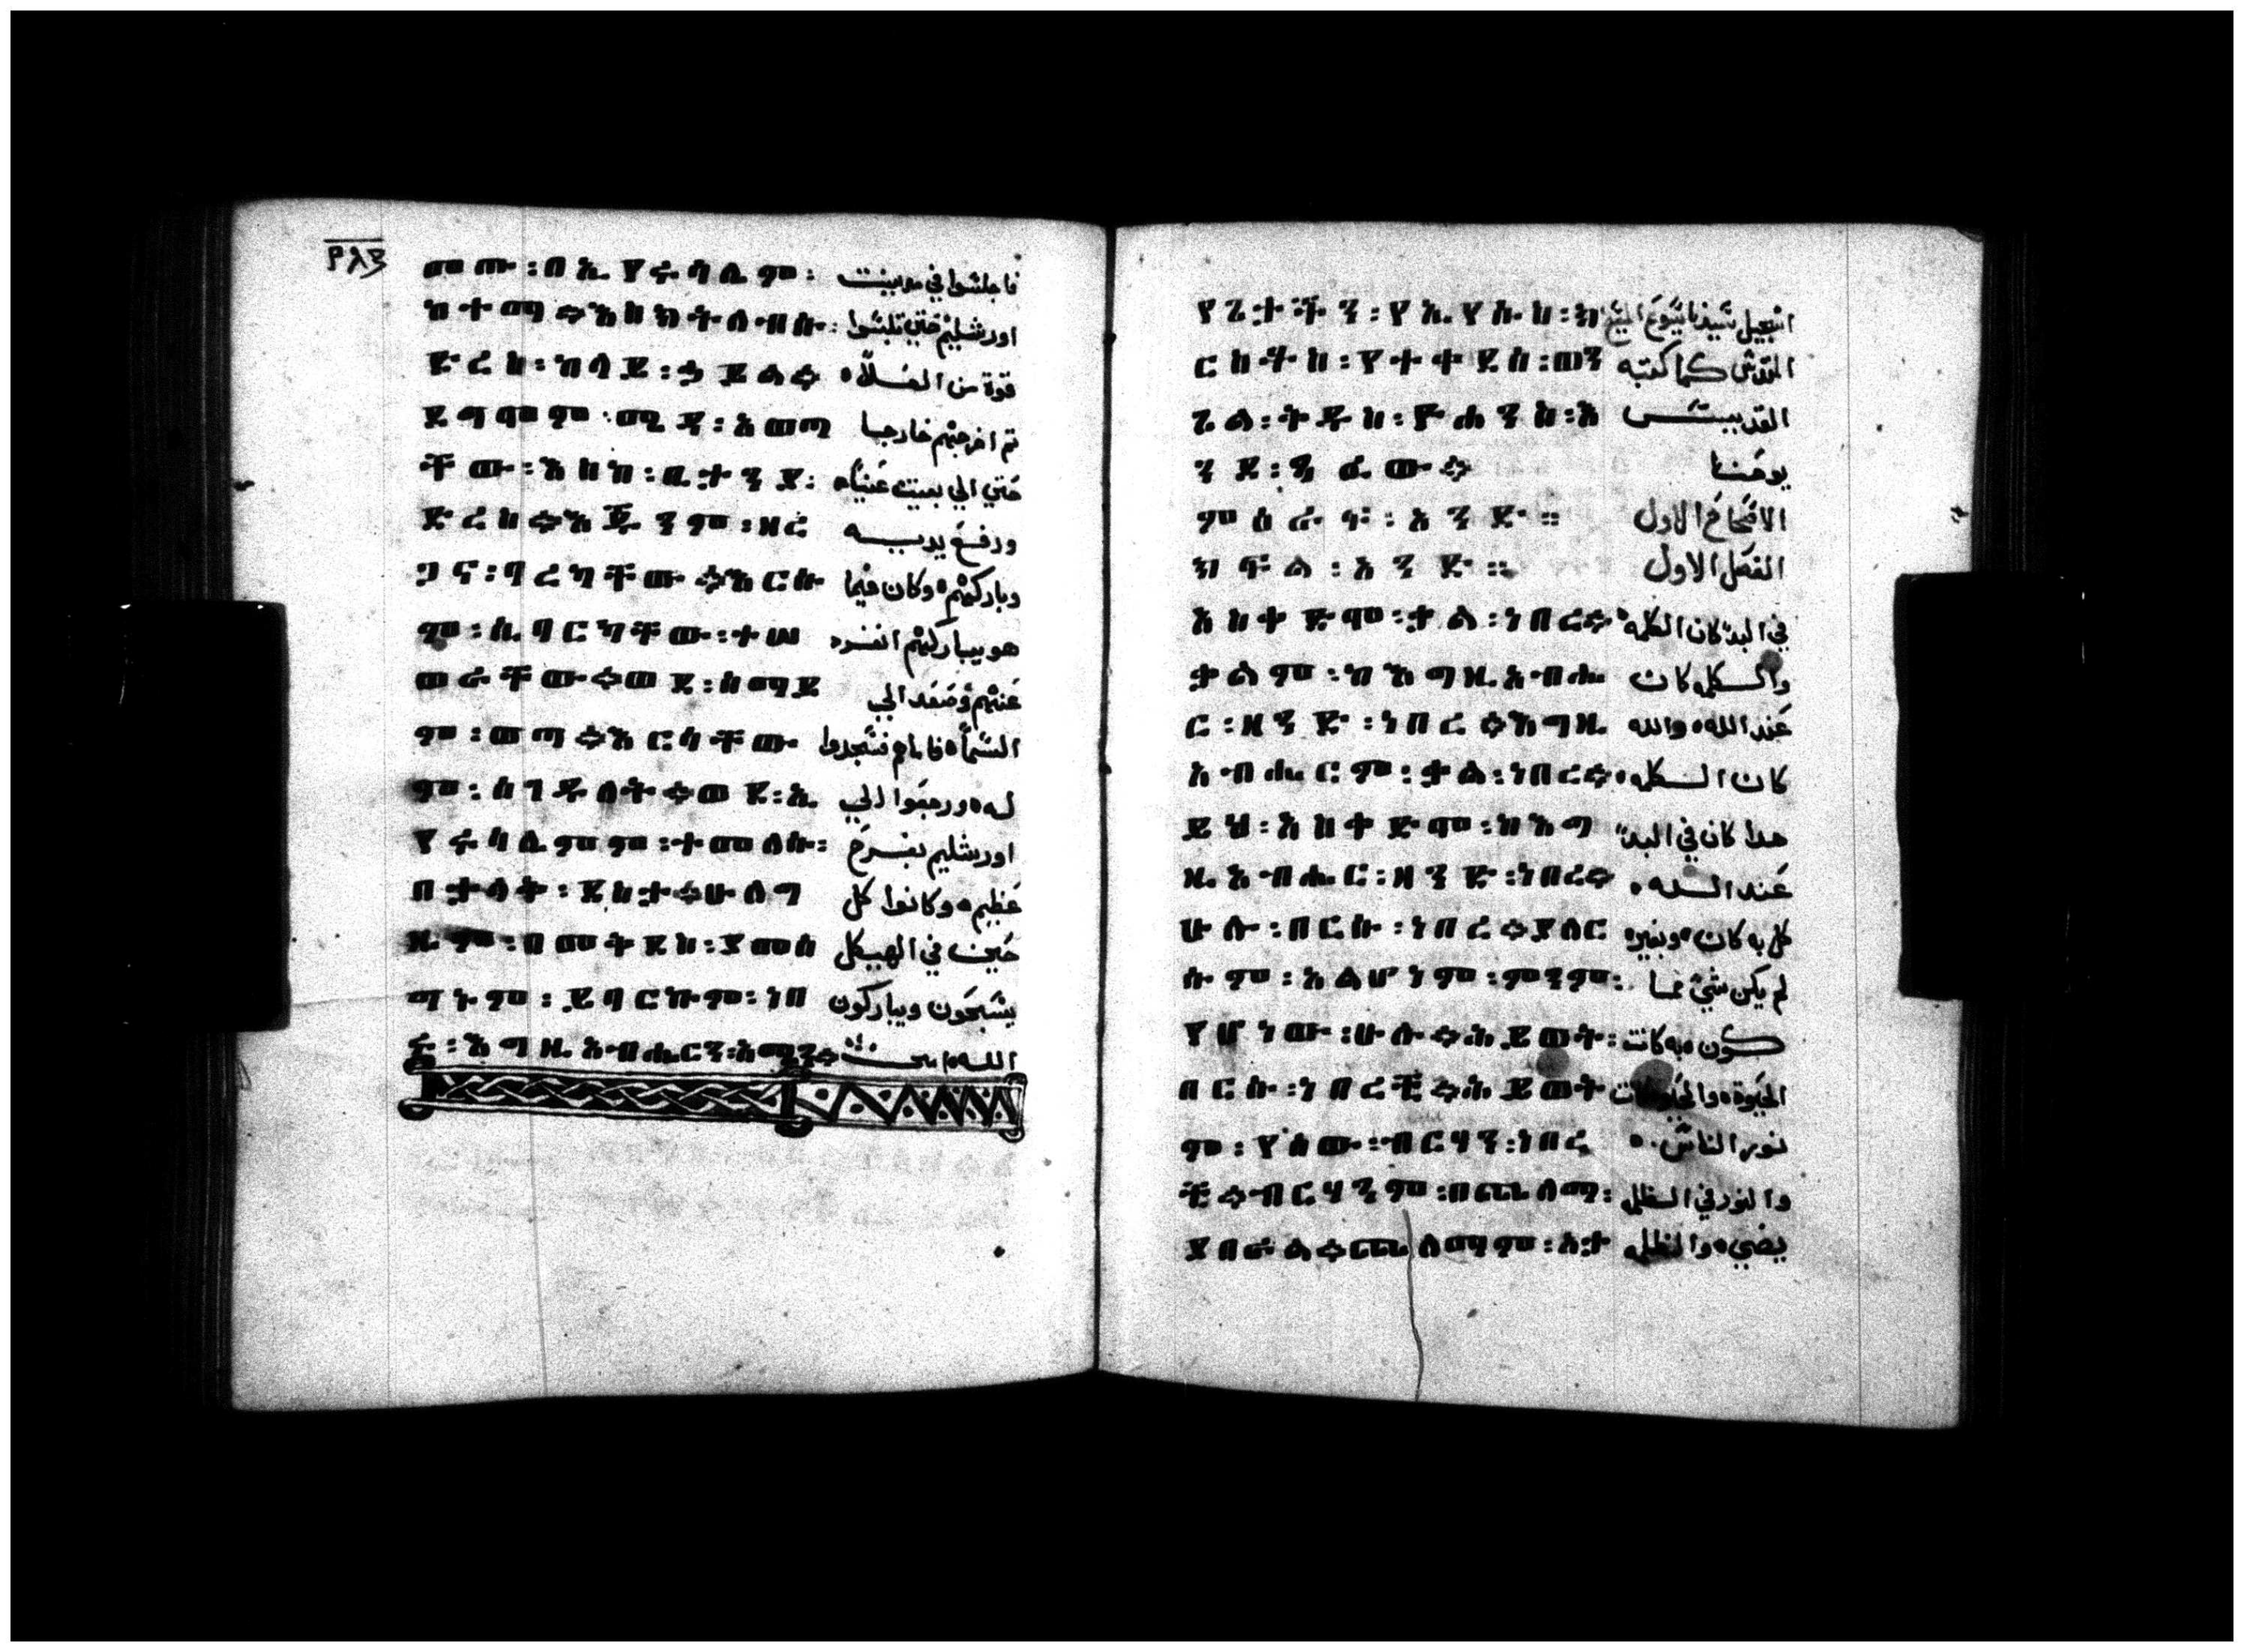 ፫፻፺፫
መጡ፡በኢየሩሳሌም፡ فاجلسوا في مدينت
ከተማ።እስክትለብሱ፡ اورشليم حتي تلبسوا
ድረስ፡ከላይ፡ኃይል። قوة من العلاء
ደግሞም፡መጂ፡አወጣ ثم اخرجهم خارجا
ቸው፡እስከ፡ቢታንያ፡ حتي الي بيت عنيا
ድረስ።እጁንም፡ዘረ ورفع يديه
ጋና፡ባረካቸው።እርሱ وباركهم وكان فيما
ም፡ሲባርካቸው፡ተሠ هو يباركهم انفرد
ወራቸው።ወደ፡ሰማይ عنهم وصعد الي
ም፡ወጣ።እርሳቸው السماء فاماهم فسجدوا
ም፡ሰገዱለት።ወደ፡ኢ له ورجعوا الي
የሩሳሌምም፡ተመለሱ፡ اورشليم بفرح
በታላቅ፡ደስታ።ሁልግ عظيم وكانوا كل
ዜም፡በመቅደስ፡ያመሰ حين في الهيكل
ግኑም፡ይባርኩም፡ነበ يسبحون ويباركون
ሩ፡እግዚአብሔርን፡አሜን። الله امين
የጌታችን፡የኢየሱስ፡ክ انجيل سيدنا يسوع المسيح
ርስቶስ፡የተቀደሰ፡ወን المقدس كما كتبه
ጌል፡ቅዱስ፡ዮሐንስ፡እ القديس
ንደ፡ጻፈው። يوحنا
ምስራፍ፡አንድ። الاصحاح الاول
ክፍል፡አንድ። الفصل الاول
አስቀድሞ፡ቃል፡ነበረ። في البدء كان الكلمه
ቃልም፡ከእግዚአብሔ والكلمه كان
ር፡ዘንድ፡ነበረ።እግዚ عند الله والله
አብሔርም፡ቃል፡ነበረ። كان الكلمه
ይህ፡አስቀድሞ፡ከእግ هدا كان في البدء
ዚአብሔር፡ዘንድ፡ነበረ። عند الله
ሁሉ፡በርሱ፡ነበረ።ያለር كل به كان وبغيره
ሱም፡አልሆነም፡ምንም፡ لم يكن شي مما
የሆነው፡ሁሉ።ሕይወት፡ كون به كانت
በርሱ፡ነበረች።ሕይወት الحيوة والحيوة كانت
ም፡የሰው፡ብርሃን፡ነበረ نور الناس
ች።ብርሃንም፡በጨለማ፡ والنور في الظلمه
ያበራል።ጨለማም፡አት يضي والظلمه